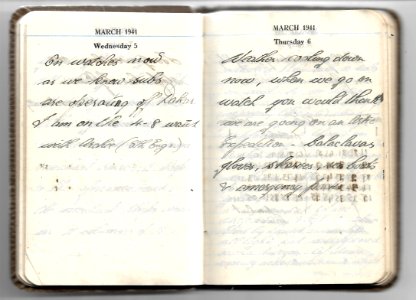 MARCH 1941
Wednesday 5
On watches now
as we know subs
are operating off
I am on the 4-8 watch
with
MARCH 1941
Thursday 6
Weather cooling down
now, when we go on
watch you would think
we are going on an
Expedition - balaclavas
gloves,
& emergency